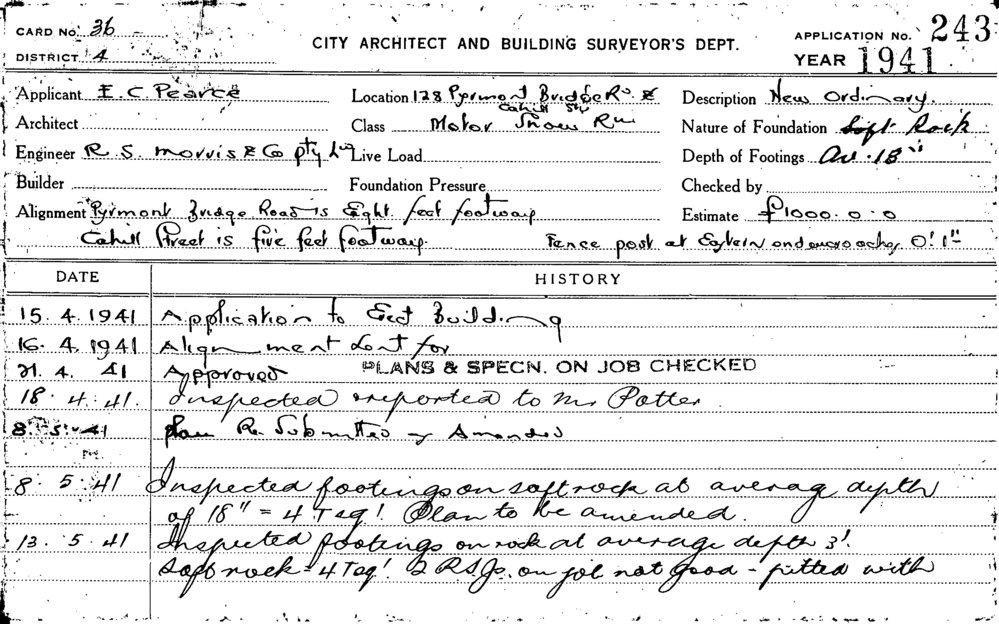 CARD No. 36
DISTRICT 4
CITY ARCHITECT AND BUILDING SURVEYOR'S DEPT.
APPLICATION No. 243
YEAR 1941
Applicant E. C. Pearce
Location 128 Pyrmont Bridge Rd &
Cahill St
Description New Ordinary.
Architect
Class Motor Show Rm
Nature of Foundation Soft Rock
Engineer R S Morris & Co Pty Ltd
Live Load
Depth of Footings Av. 18"
Builder
Foundation Pressure
Checked by
Alignment Pyrmont Bridge Road is Eight feet footway
Estimate £1000.0.0
Cahill Street is five feet footway. Fence post at Eastern end encroaches 0'.1"
DATE HISTORY
15.4.1941 Application to Erect Building
16.4.1941 Alignment sent for
21.4.41 Approved PLANS & SPECN. ON JOB CHECKED
18.4.41. Inspected & reported to Mr Potter
8.5.41 plan Re Submitted as Amended
8.5.41 Inspected footings on soft rock at averag depth
of 18" = 4 T sq'. Plan to be amended.
13.5.41 Inspected footings on rock at average depth 3'.
Soft rock - 4 T sq'. 2 R.S.Js. on job not good - pitted with